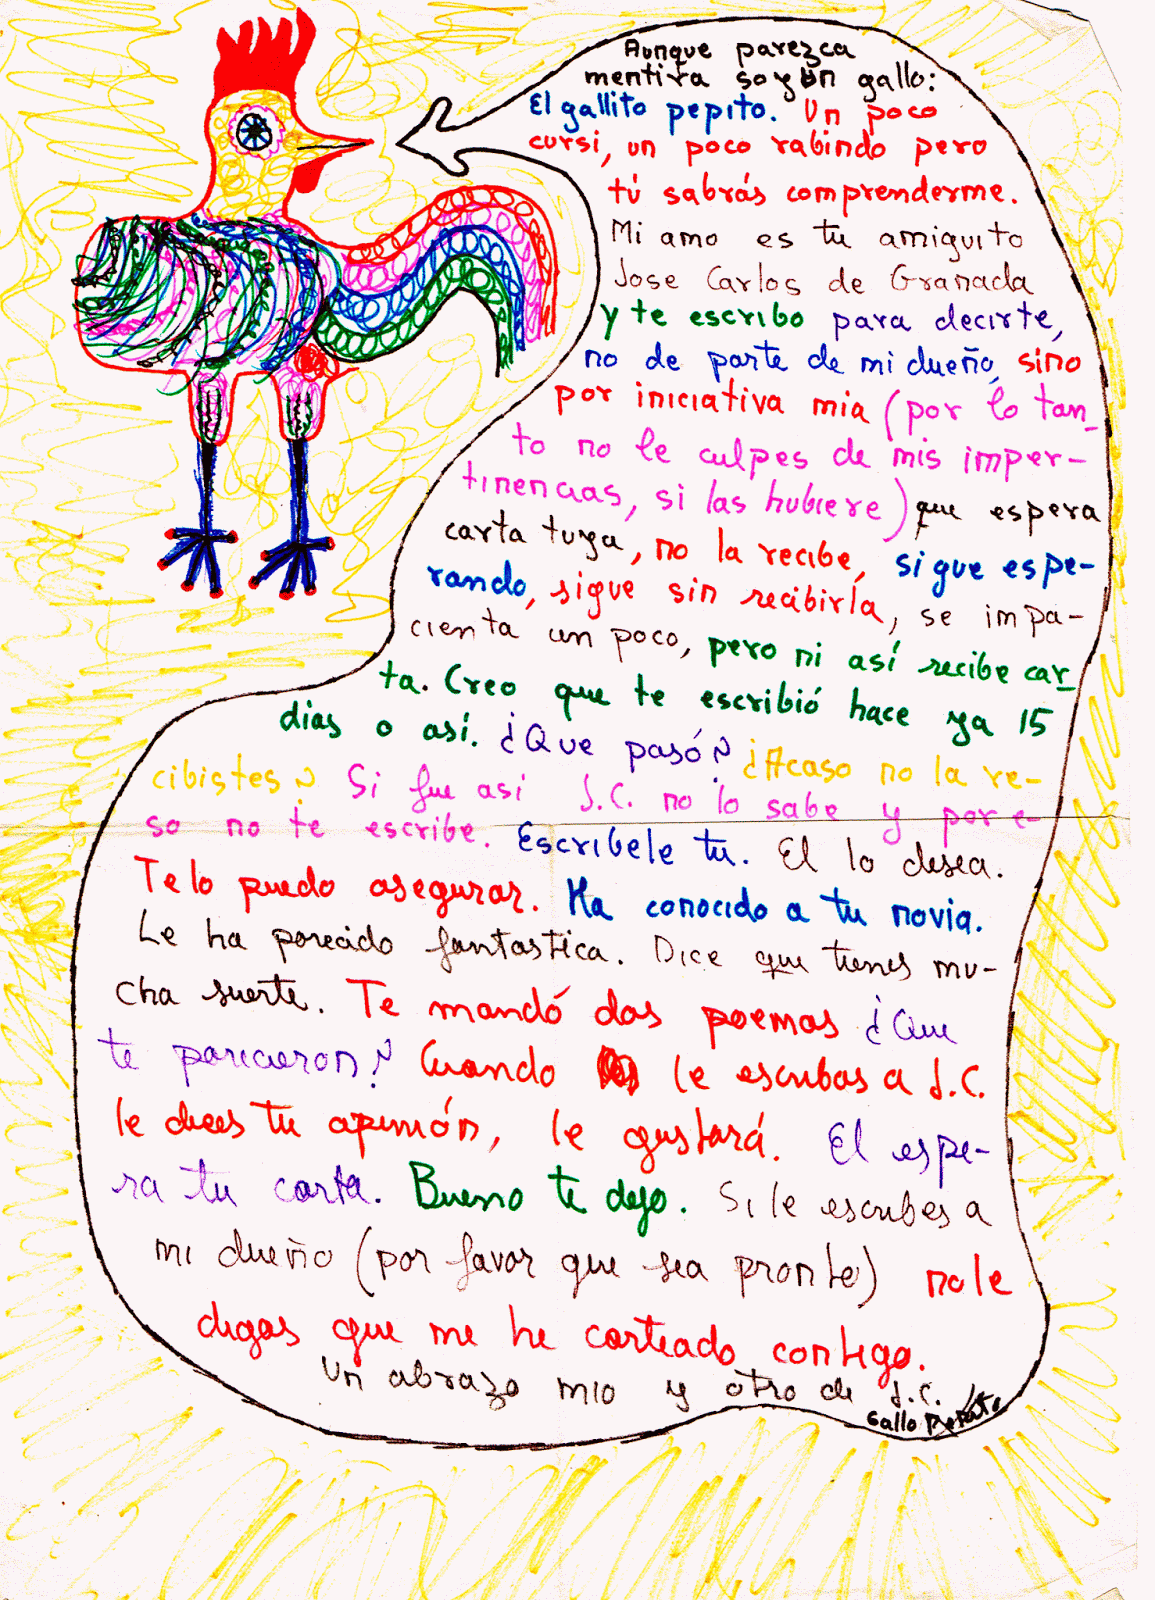 Aunque parezca
mentira soy un gallo:
El gallito pepito. Un poco
cursi, un poco rabindo pero
tú sabrás comprenderme.
Mi amo es tu amiguito
Jose Carlos de Granada
y te escribo para decirte,
no de parte de mi dueño, sino
por iniciativa mia (por lo tan-
to no le culpes de mis imper-
tinencias, si las hubiere) que espera
carta tuya, no la recibe, sigue espe-
rando, sigue sin recibirla, se impa-
cienta un poco, pero ni así recibe car-
ta. Creo que te escribió hace ya 15
dias o así. ¿Que pasó? ¿Acaso no la re-
cibistes? Si fue asi J.C. no lo sabe y por e-
so no te escribe. Escribele tu. El lo desea.
Te lo puedo asegurar. Ha conocido a tu novia.
Le ha parecido fantastica. Dice que tienes mu-
cha suerte. Te mandó dos poemas ¿Que
te parecieron? Cuando le escribas a J.C.
le dices tu opinión, le gustará. El espe-
ra tu carta. Bueno te dejo. Si le escribes a
mi dueño (por favor que sea pronto) no le
digas que me he carteado contigo.
Un abrazo mio y otro de J.C.
Gallo Pepito